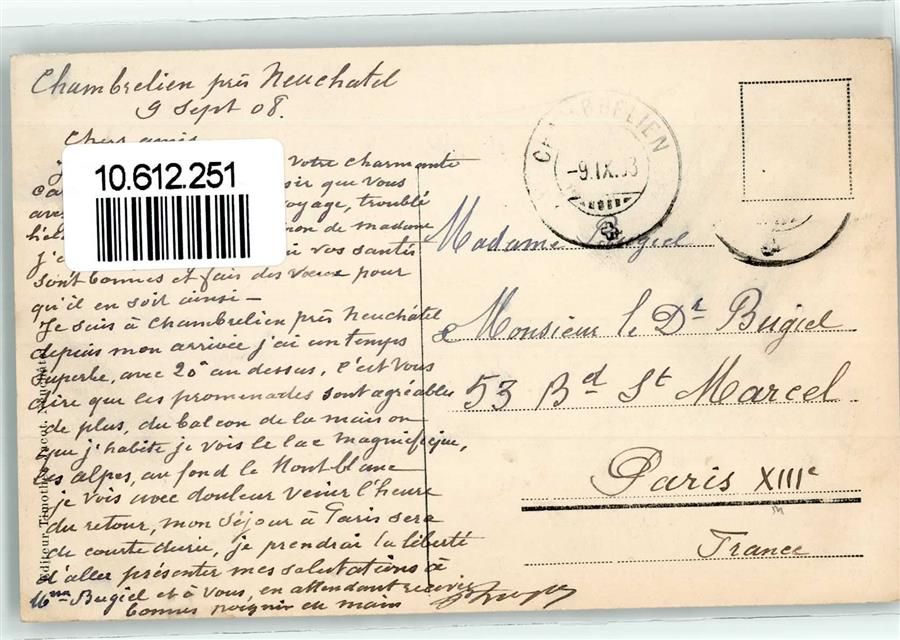 Chambrelien près Neuchatel
9 Sept 08.
Chers amis
10.612.251
votre charmante
que vous
voyage, troublé
de madame
vos santés
sont bonnes et fais des voeux pour
qu'il en soit ainsi —
Je suis à Chambrelien près Neuchâtel
depuis mon arrivée j'ai un temps
superbe, avec 20° au dessus, c'est vous
dire que les promenades sont agréables
de plus, du balcon de la maison
que j'habite je vois le lac magnifique,
les alpes, au fond le Mont blanc
je vois avec douleur venir l'heure
du retour, mon séjour à Paris sera
de courte durée, je prendrai la liberté
d'aller présenter mes salutations à
Mme Bugiel et à vous, en attendant recevez
bonnes poignée de main
Editeur Timothée Jacot
CHAMBRELIEN
-9.IX.08
Madame Bugiel
& Monsieur le Dr Bugiel
53 Bd St Marcel
Paris XIIIe
France